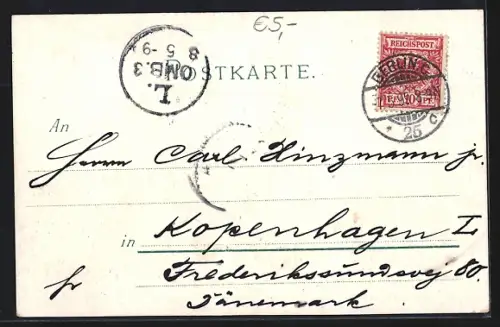 €5,-
L.
OMB.3
8 5-9
POSTKARTE.
REICHSPOST
PFENNIG
BERLIN C
25
An
Herrn Carl Hinzmann jr.
Kopenhagen L
in
Frederikssundsvej 80.
Dänemark.